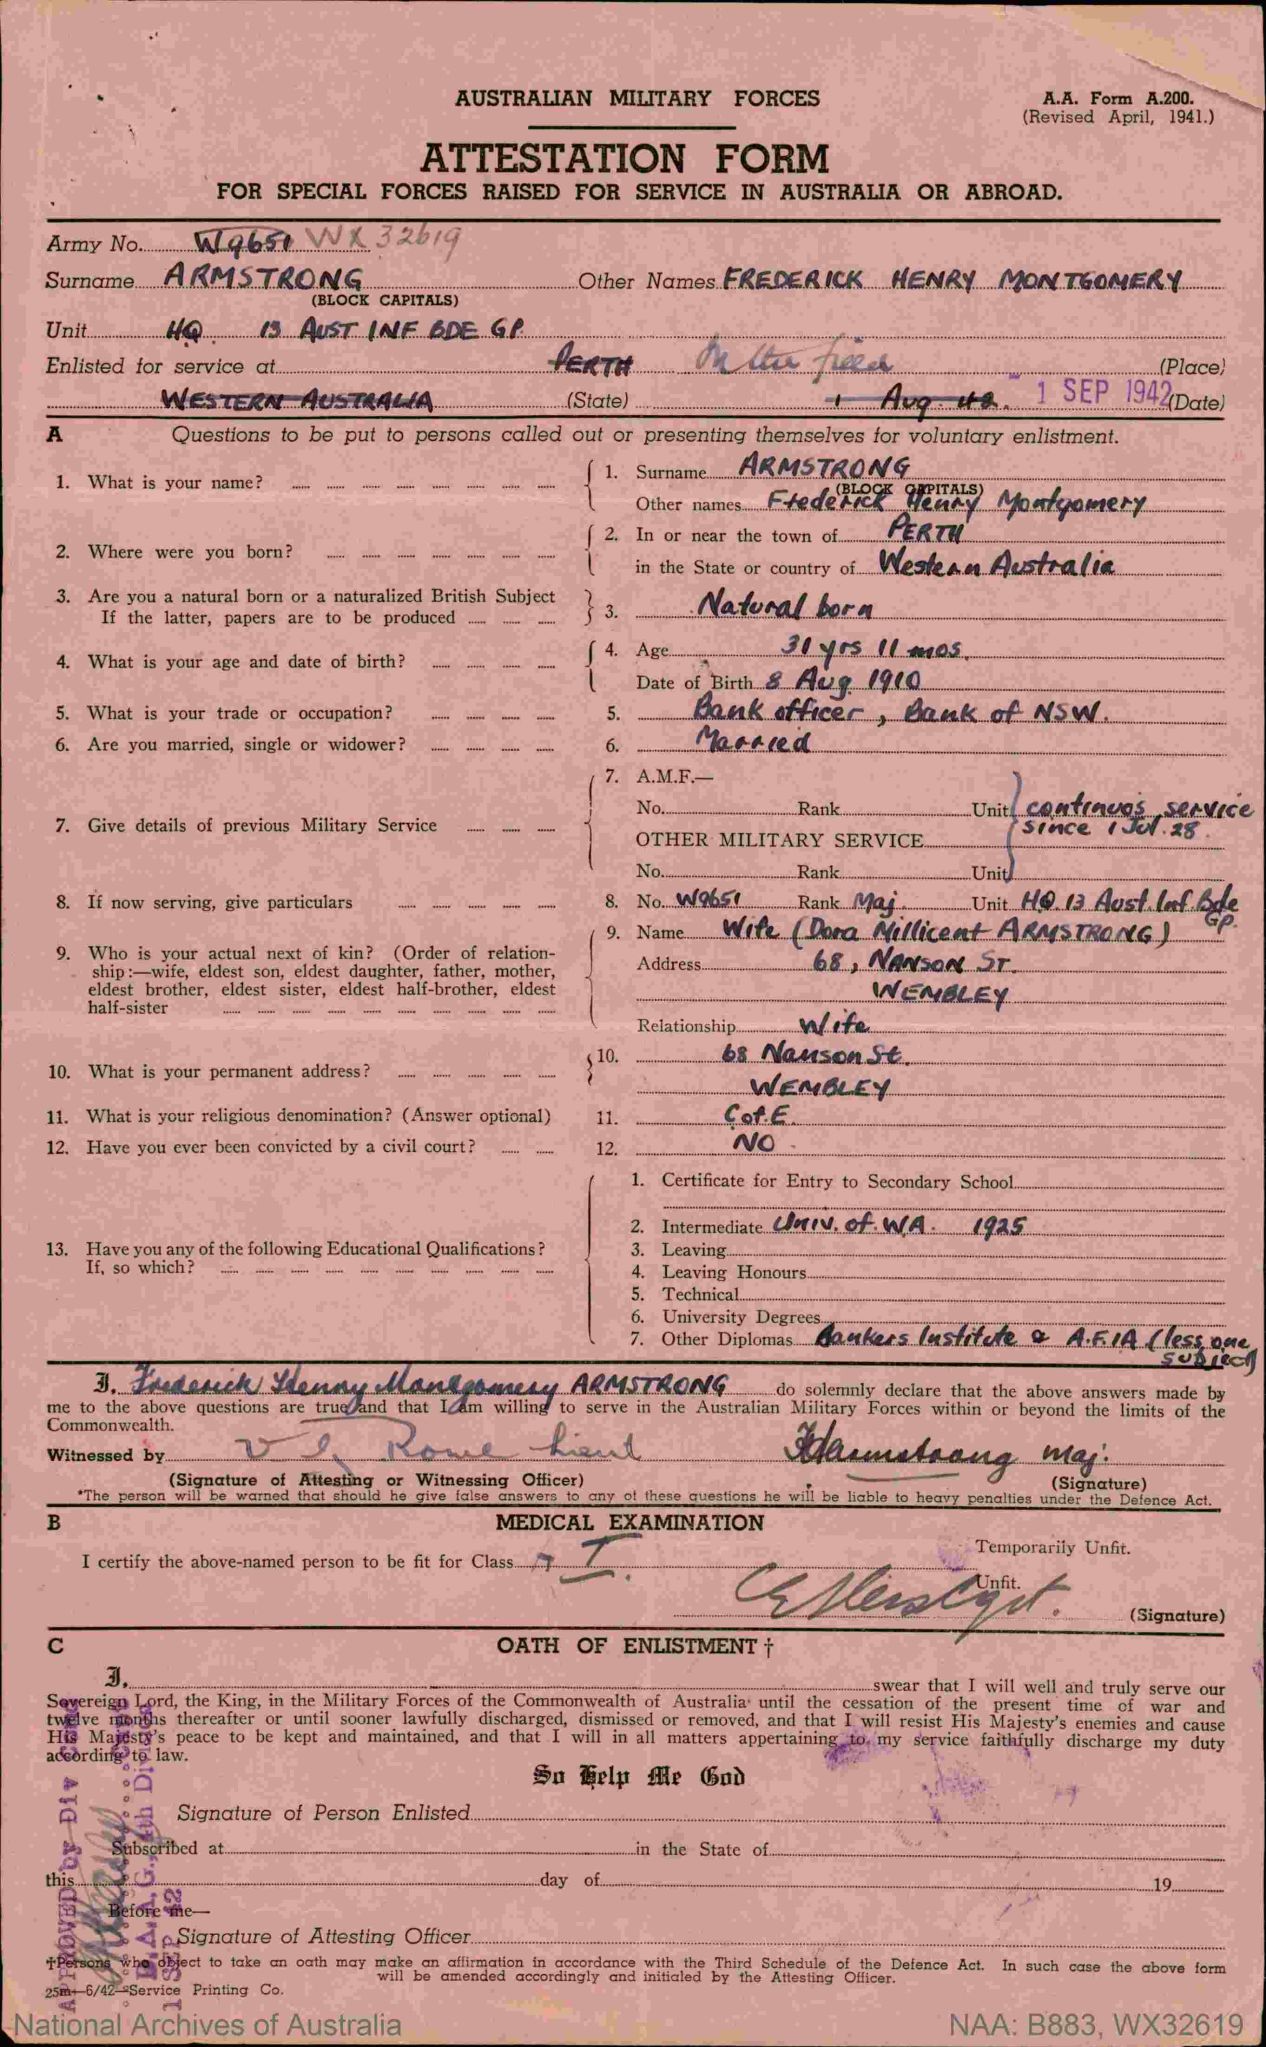 AUSTRALIAN MILITARY FORCES
A.A. Form A.200.
(Revised April, 1941.)
ATTESTATION FORM
FOR SPECIAL FORCES RAISED FOR SERVICE IN AUSTRALIA OR ABROAD.
Army No. W9651 WX 32619
Surname ARMSTRONG Other Names FREDERICK HENRY MONTGOMERY
(BLOCK CAPITALS)
Unit HQ 13 AUST INF BDE GP.
Enlisted for service at PERTH In the field (Place)
WESTERN AUSTRALIA (State) 1 Aug 42. - 1 SEP 1942 (Date)
A Questions to be put to persons called out or presenting themselves for voluntary enlistment.
1. What is your name? 1. Surname ARMSTRONG
(BLOCK CAPITALS)
Other names Frederick Henry Montgomery
2. Where were you born? 2. In or near the town of PERTH
in the State or country of Western Australia
3. Are you a natural born or a naturalized British Subject
If the latter, papers are to be produced 3. Natural born
4. What is your age and date of birth? 4. Age 31 yrs 11 mos.
Date of Birth 8 Aug 1910
5. What is your trade or occupation? 5. Bank officer, Bank of NSW.
6. Are you married, single or widower? 6. Married
7. Give details of previous Military Service 7. A.M.F.—
No. Rank Unit continuos service
since 1 Jul. 28
OTHER MILITARY SERVICE
No. Rank Unit
8. If now serving, give particulars 8. No. W9651 Rank Maj Unit HQ. 13 Aust. Inf. Bde
GP.
9. Who is your actual next of kin? (Order of relation-
ship:—wife, eldest son, eldest daughter, father, mother,
eldest brother, eldest sister, eldest half-brother, eldest
half-sister
9. Name Wife (Dora Millicent ARMSTRONG)
Address 68, NANSON ST.
WEMBLEY
Relationship Wife
10. What is your permanent address? 10. 68 Nanson St.
WEMBLEY
11. What is your religious denomination? (Answer optional) 11. C of E.
12. Have you ever been convicted by a civil court? 12. NO.
13. Have you any of the following Educational Qualifications?
If, so which?
1. Certificate for Entry to Secondary School
2. Intermediate Univ. of W.A. 1925
3. Leaving
4. Leaving Honours
5. Technical
6. University Degrees
7. Other Diplomas Bankers Institute & A.F.I.A (less one
subject)
I, Frederick Henry Montgomery ARMSTRONG do solemnly declare that the above answers made by
me to the above questions are true and that I am willing to serve in the Australian Military Forces within or beyond the limits of the
Commonwealth.
Witnessed by Rowe Lieut FHArmstrong Maj.
(Signature of Attesting or Witnessing Officer) (Signature)
*The person will be warned that should he give false answers to any of these questions he will be liable to heavy penalties under the Defence Act.
B MEDICAL EXAMINATION
I certify the above-named person to be fit for Class I. Temporarily Unfit.
Unfit.
(Signature)
C OATH OF ENLISTMENT †
I, swear that I will well and truly serve our
Sovereign Lord, the King, in the Military Forces of the Commonwealth of Australia until the cessation of the present time of war and
twelve months thereafter or until sooner lawfully discharged, dismissed or removed, and that I will resist His Majesty's enemies and cause
His Majesty's peace to be kept and maintained, and that I will in all matters appertaining to my service faithfully discharge my duty
according to law.
So Help Me God
Signature of Person Enlisted
Subscribed at in the State of
this day of 19
Before me—
Signature of Attesting Officer
†Persons who object to take an oath may make an affirmation in accordance with the Third Schedule of the Defence Act. In such case the above form
will be amended accordingly and initialed by the Attesting Officer.
25m—6/42—Service Printing Co.
APPROVED by Div
D.A.A.G., 4th Division
1 SEP 42
National Archives of Australia NAA: B883, WX32619